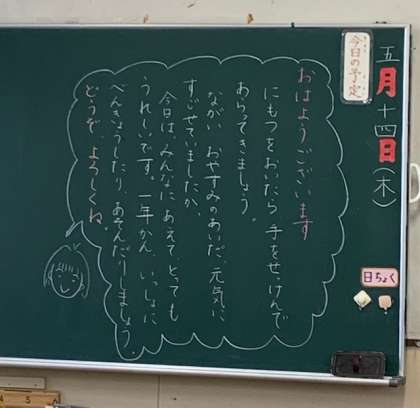 五月十四日(木)
今日の予定
日ちょく
おはようございます
にもつをおいたら 手をせっけんで
あらってきましょう。
ながい おやすみのあいだ、元気に
すごせていましたか。
今日は、みんなに あえて、とっても
うれしいです。一年かん、いっしょに
べんきょうしたり、あそんだりしましょう。
どうぞ、よろしくね。
4 5